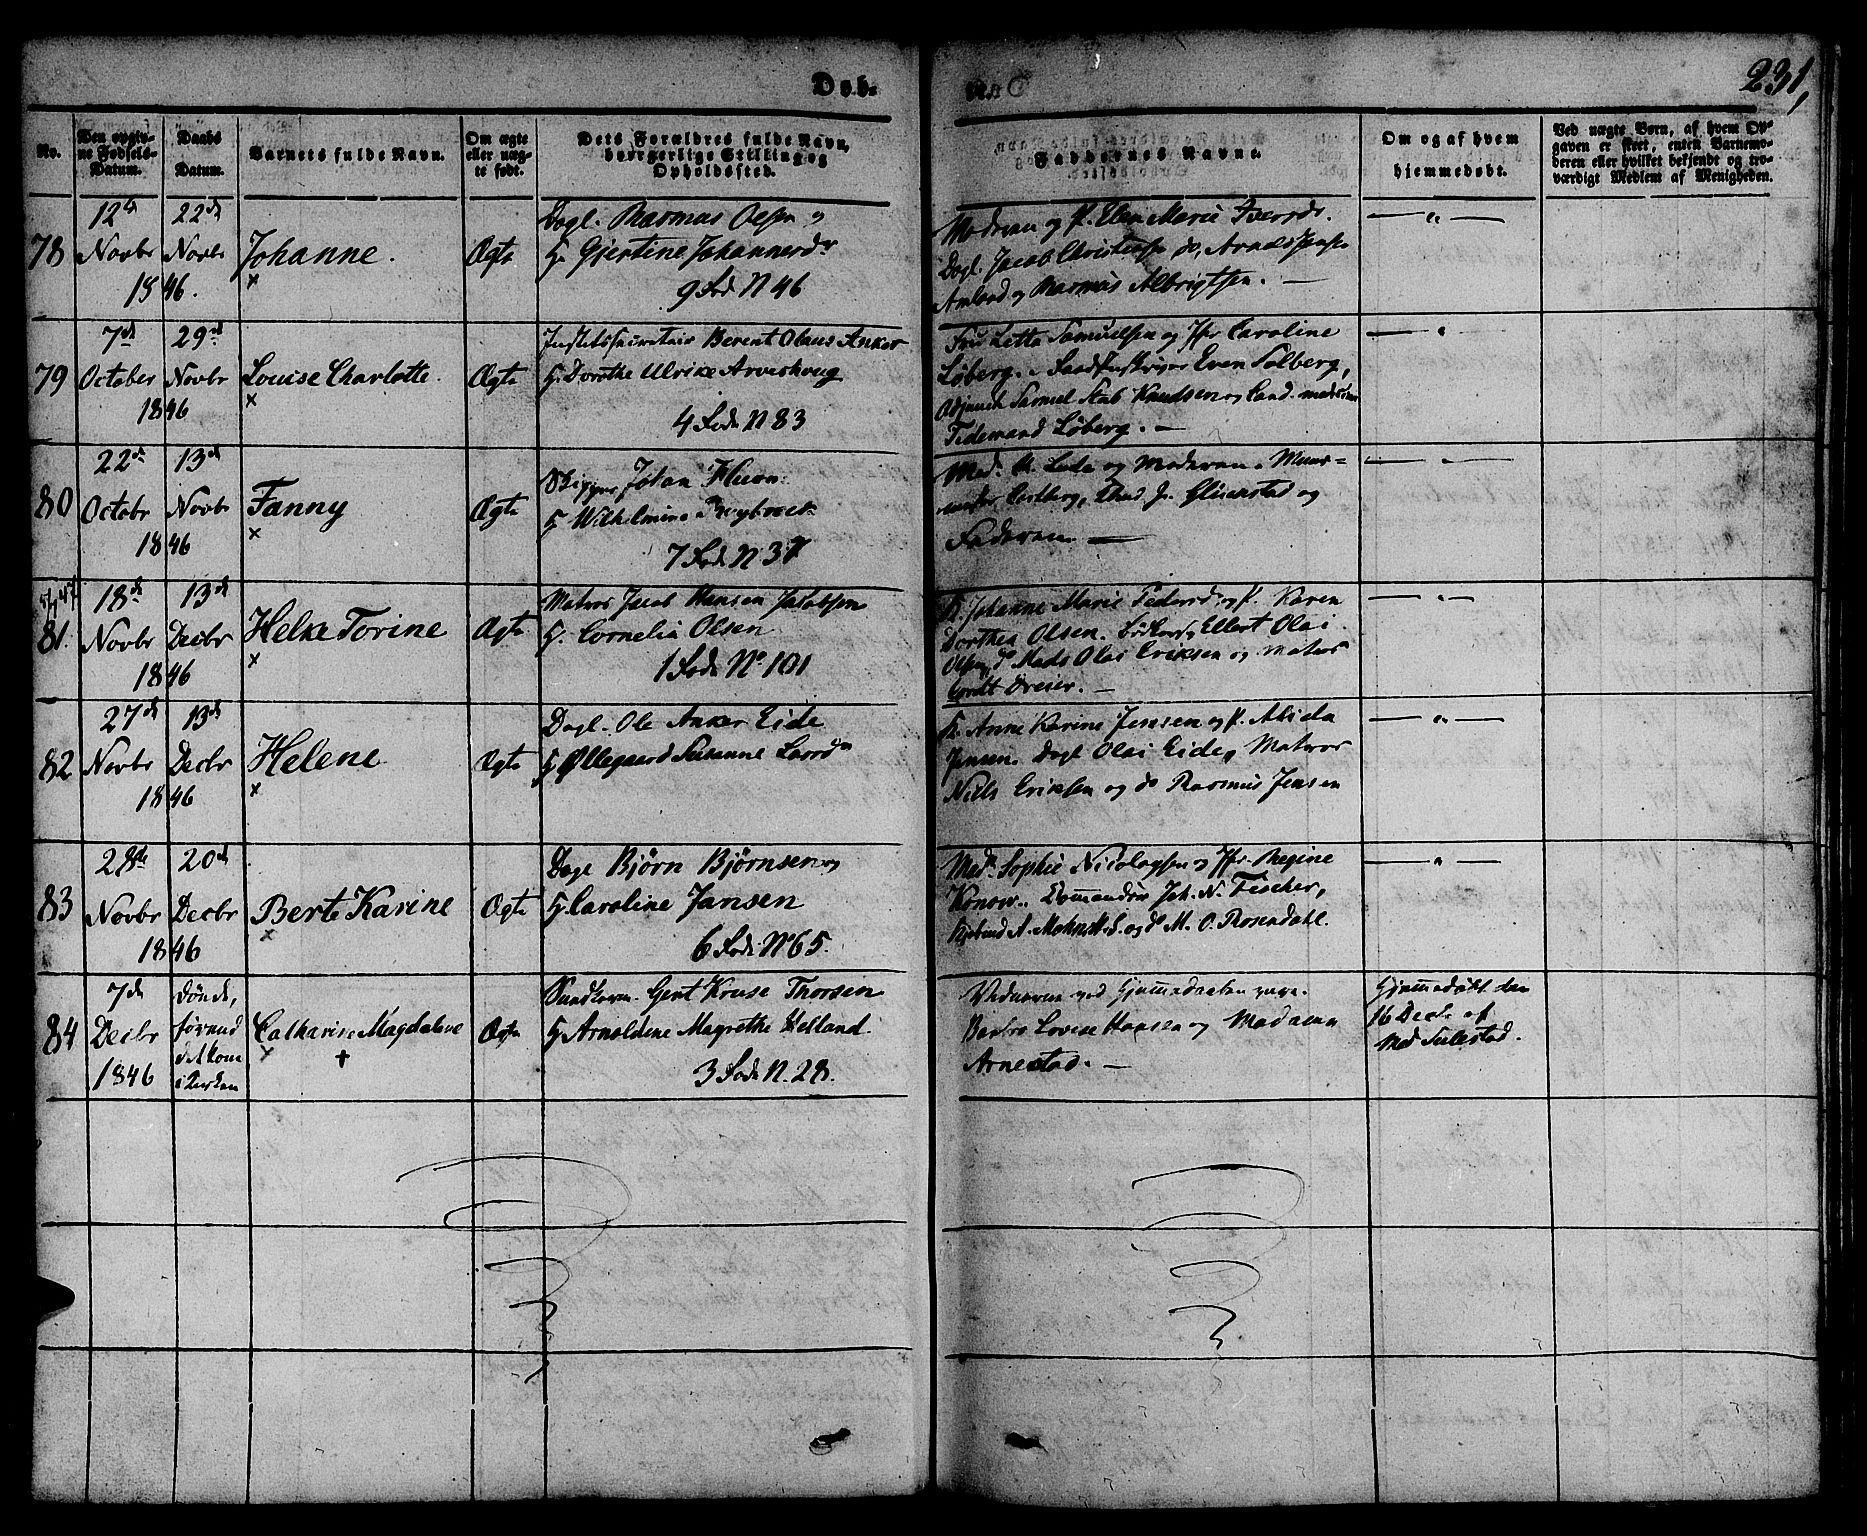 Døb-
231,
No.
Den opgiv-
ne Fødsels-
Datum.
Daabs
Datum.
Barnets fulde Navn.
Om ægte
eller uæg-
te født.
Dets Forældres fulde Navn,
borgerlige Stilling og
Opholdssted.
Faddernes Navne.
Om og af hvem
hjemmedøbt.
Ved uægte Børn, af hvem Op-
gaven er skeet, enten Barnemo-
deren eller hvilket bekjendt og tro-
værdigt Medlem af Menigheden.
78
12te
Novbr
1846.
22de
Novbr
Johanne.
Ægte
Dagl. Rasmus Olsen og
H. Gjertine Johannesdr
9 Rode N 46
Moderen og P. Elen Marie Iversdr.
Dagl. Jacob Christensen do, Arnoldus
og Rasmus Albrigtsen. —
79
7de
October
1846
29de
Novbr
Louise Charlotte.
Ægte
Berent Olaus Anker
H. Dorothe Ulrike Arveskoug
4 Rode N 83
Fru Samuelsen og Jfr Caroline
Løberg. Even Solberg,
Adjunct Samuel Knudsen og Cand. med.
Tidemand Løberg. —
80
22de
Octobr
1846
13de
Novbr
Fanny
Ægte
Skipper Johan
H. Wilhelmine
7 Rode N. 37
Mad. og Moderen. Muur-
mester og
Faderen —
81.
18de
Novbr
1846
13de
Decbr
Helse Torine
Ægte
Matros Jacob Hansen Jacobsen
H. Cornelia Olsen
1 Rode No. 101
K. Johanne Marie Pedersdr og P. Karen
Dorthea Olsen. Ellert Olai
Olsen, do Mads Olai Eriksen og Matros
Cordt Dreier. —
82
27de
Novbr
1846
13de
Decbr
Helene
Ægte
Dagl. Ole Anker Eide
H. Øllegaard Susanne
K. Anne Karine Jensen og P.
Jensen. Dagl Olai Eide, Matros
Niels Eriksen og do Rasmus Jensen
83
28de
Novbr
1846
20de
Decbr
Berte Karine
Ægte
Dagl Bjørn Bjørnsen og
H. Caroline Jansen
6 Rode No 65.
Mad. Sophie Nicolaysen og Jfr. Regine
Konow. Commandør Joh. N. Fischer,
Kjøbmd A. Mohn og do M. O. Rosendahl.
84
7de
Decbr
1846
Døde,
førend
det kom
i Kirken
Catharine Magdalene
Ægte
Gert Kruse Thorsen
H. Arnoldine Magrethe Helland.
3 Rode N. 28.
Vidnerne ved Hjemmedaaben vare.
Louise Hansen og Madame
Arnestad. —
Hjemmedøbt den
16 Decbr af
Mad Sulestad.